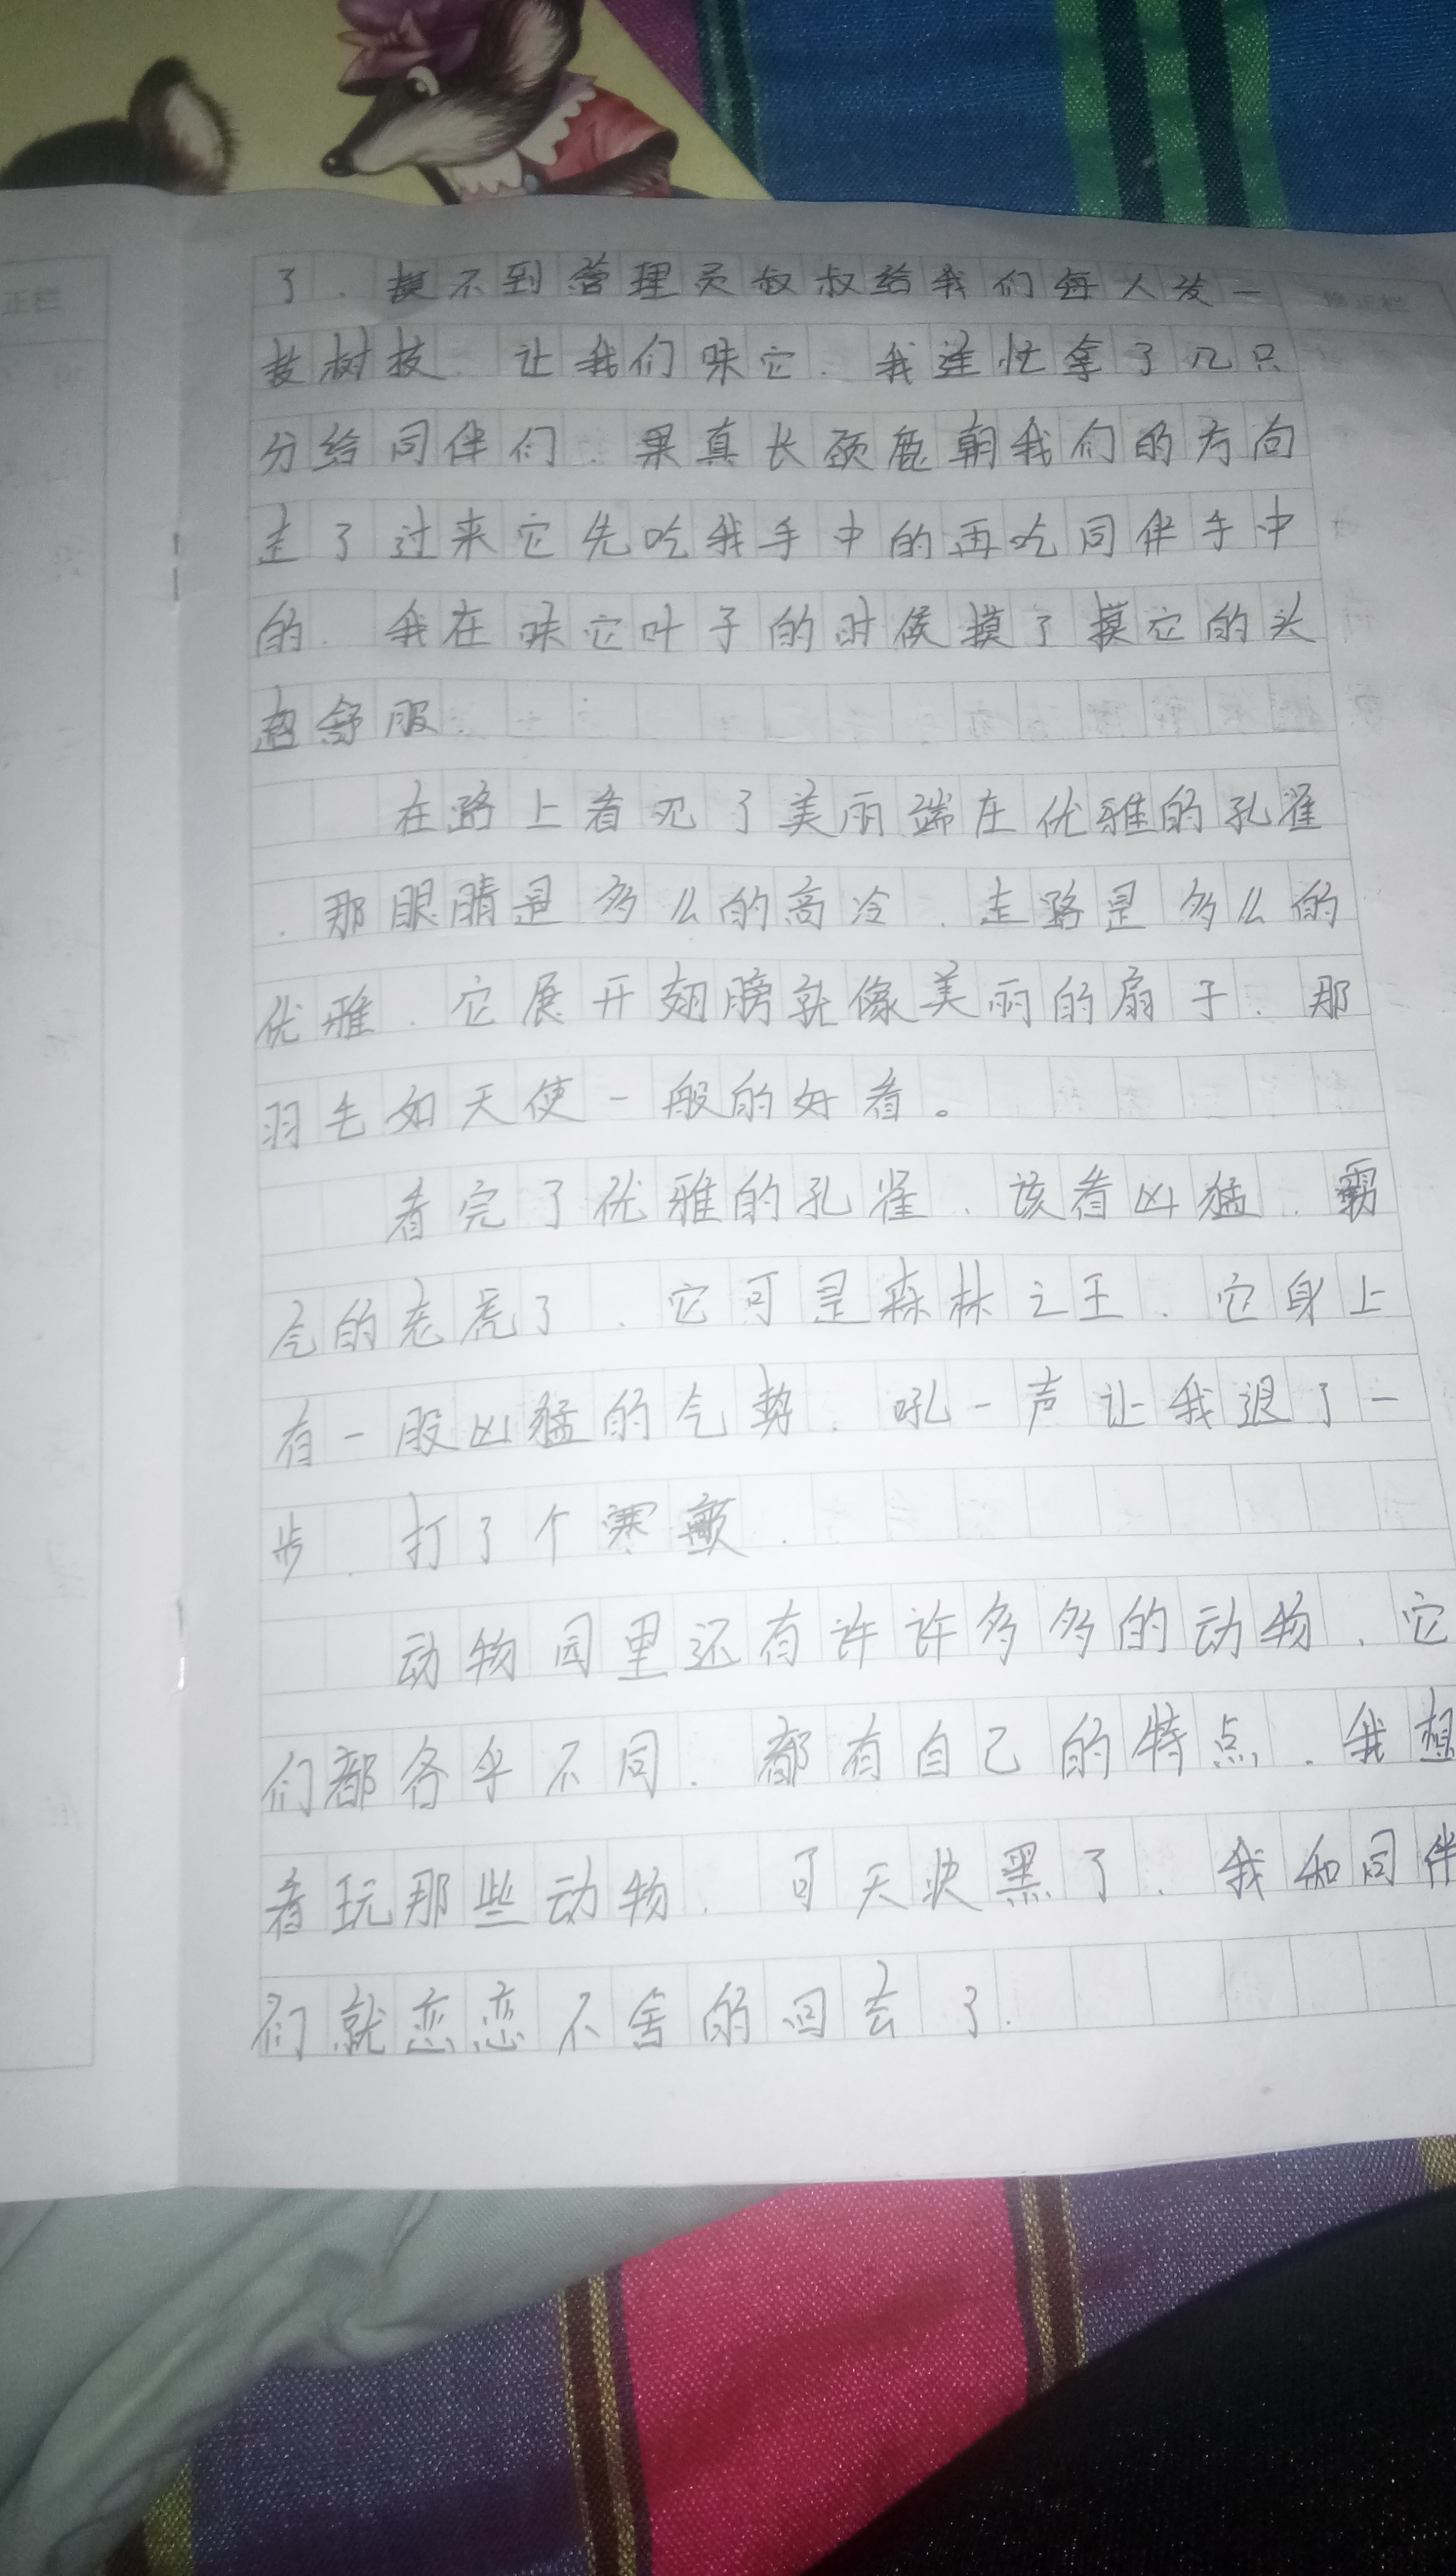 正栏
修正栏
了.摸不到管理员叔叔给我们每人发一
枝树枝.让我们味它.我连忙拿了几只
分给同伴们.果真长颈鹿朝我们的方向
走了过来它先吃我手中的再吃同伴手中
的.我在味它叶子的时候摸了摸它的头
超舒服.
在路上看见了美丽端庄优雅的孔雀
.那眼睛是多么的高冷.走路是多么的
优雅.它展开翅膀就像美丽的扇子.那
羽毛如天使一般的好看。
看完了优雅的孔雀.该看凶猛.霸
气的老虎了.它可是森林之王.它身上
有一股凶猛的气势.吼一声让我退了一
步.打了个寒颤.
动物园里还有许许多多的动物.它
们都各乎不同.都有自己的特点.我想
看玩那些动物.可天快黑了.我和同伴
们就恋恋不舍的回去了.